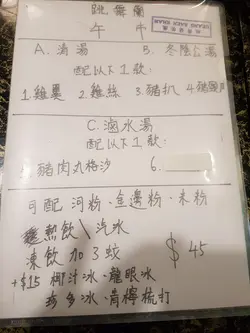 跳舞蘭
午市
A. 滷湯 B. 冬陰公湯
配以下1款
1.雞翼 2.雞絲 3.豬扒 4.豬頸肉
C. 滷水湯
配以下1款:
豬肉丸梅沙 6.
可配 河粉、金邊粉、米粉
熱飲\汽水
凍飲加3蚊 $45
+$15 椰汁冰、龍眼冰
珍多冰、青檸梳打